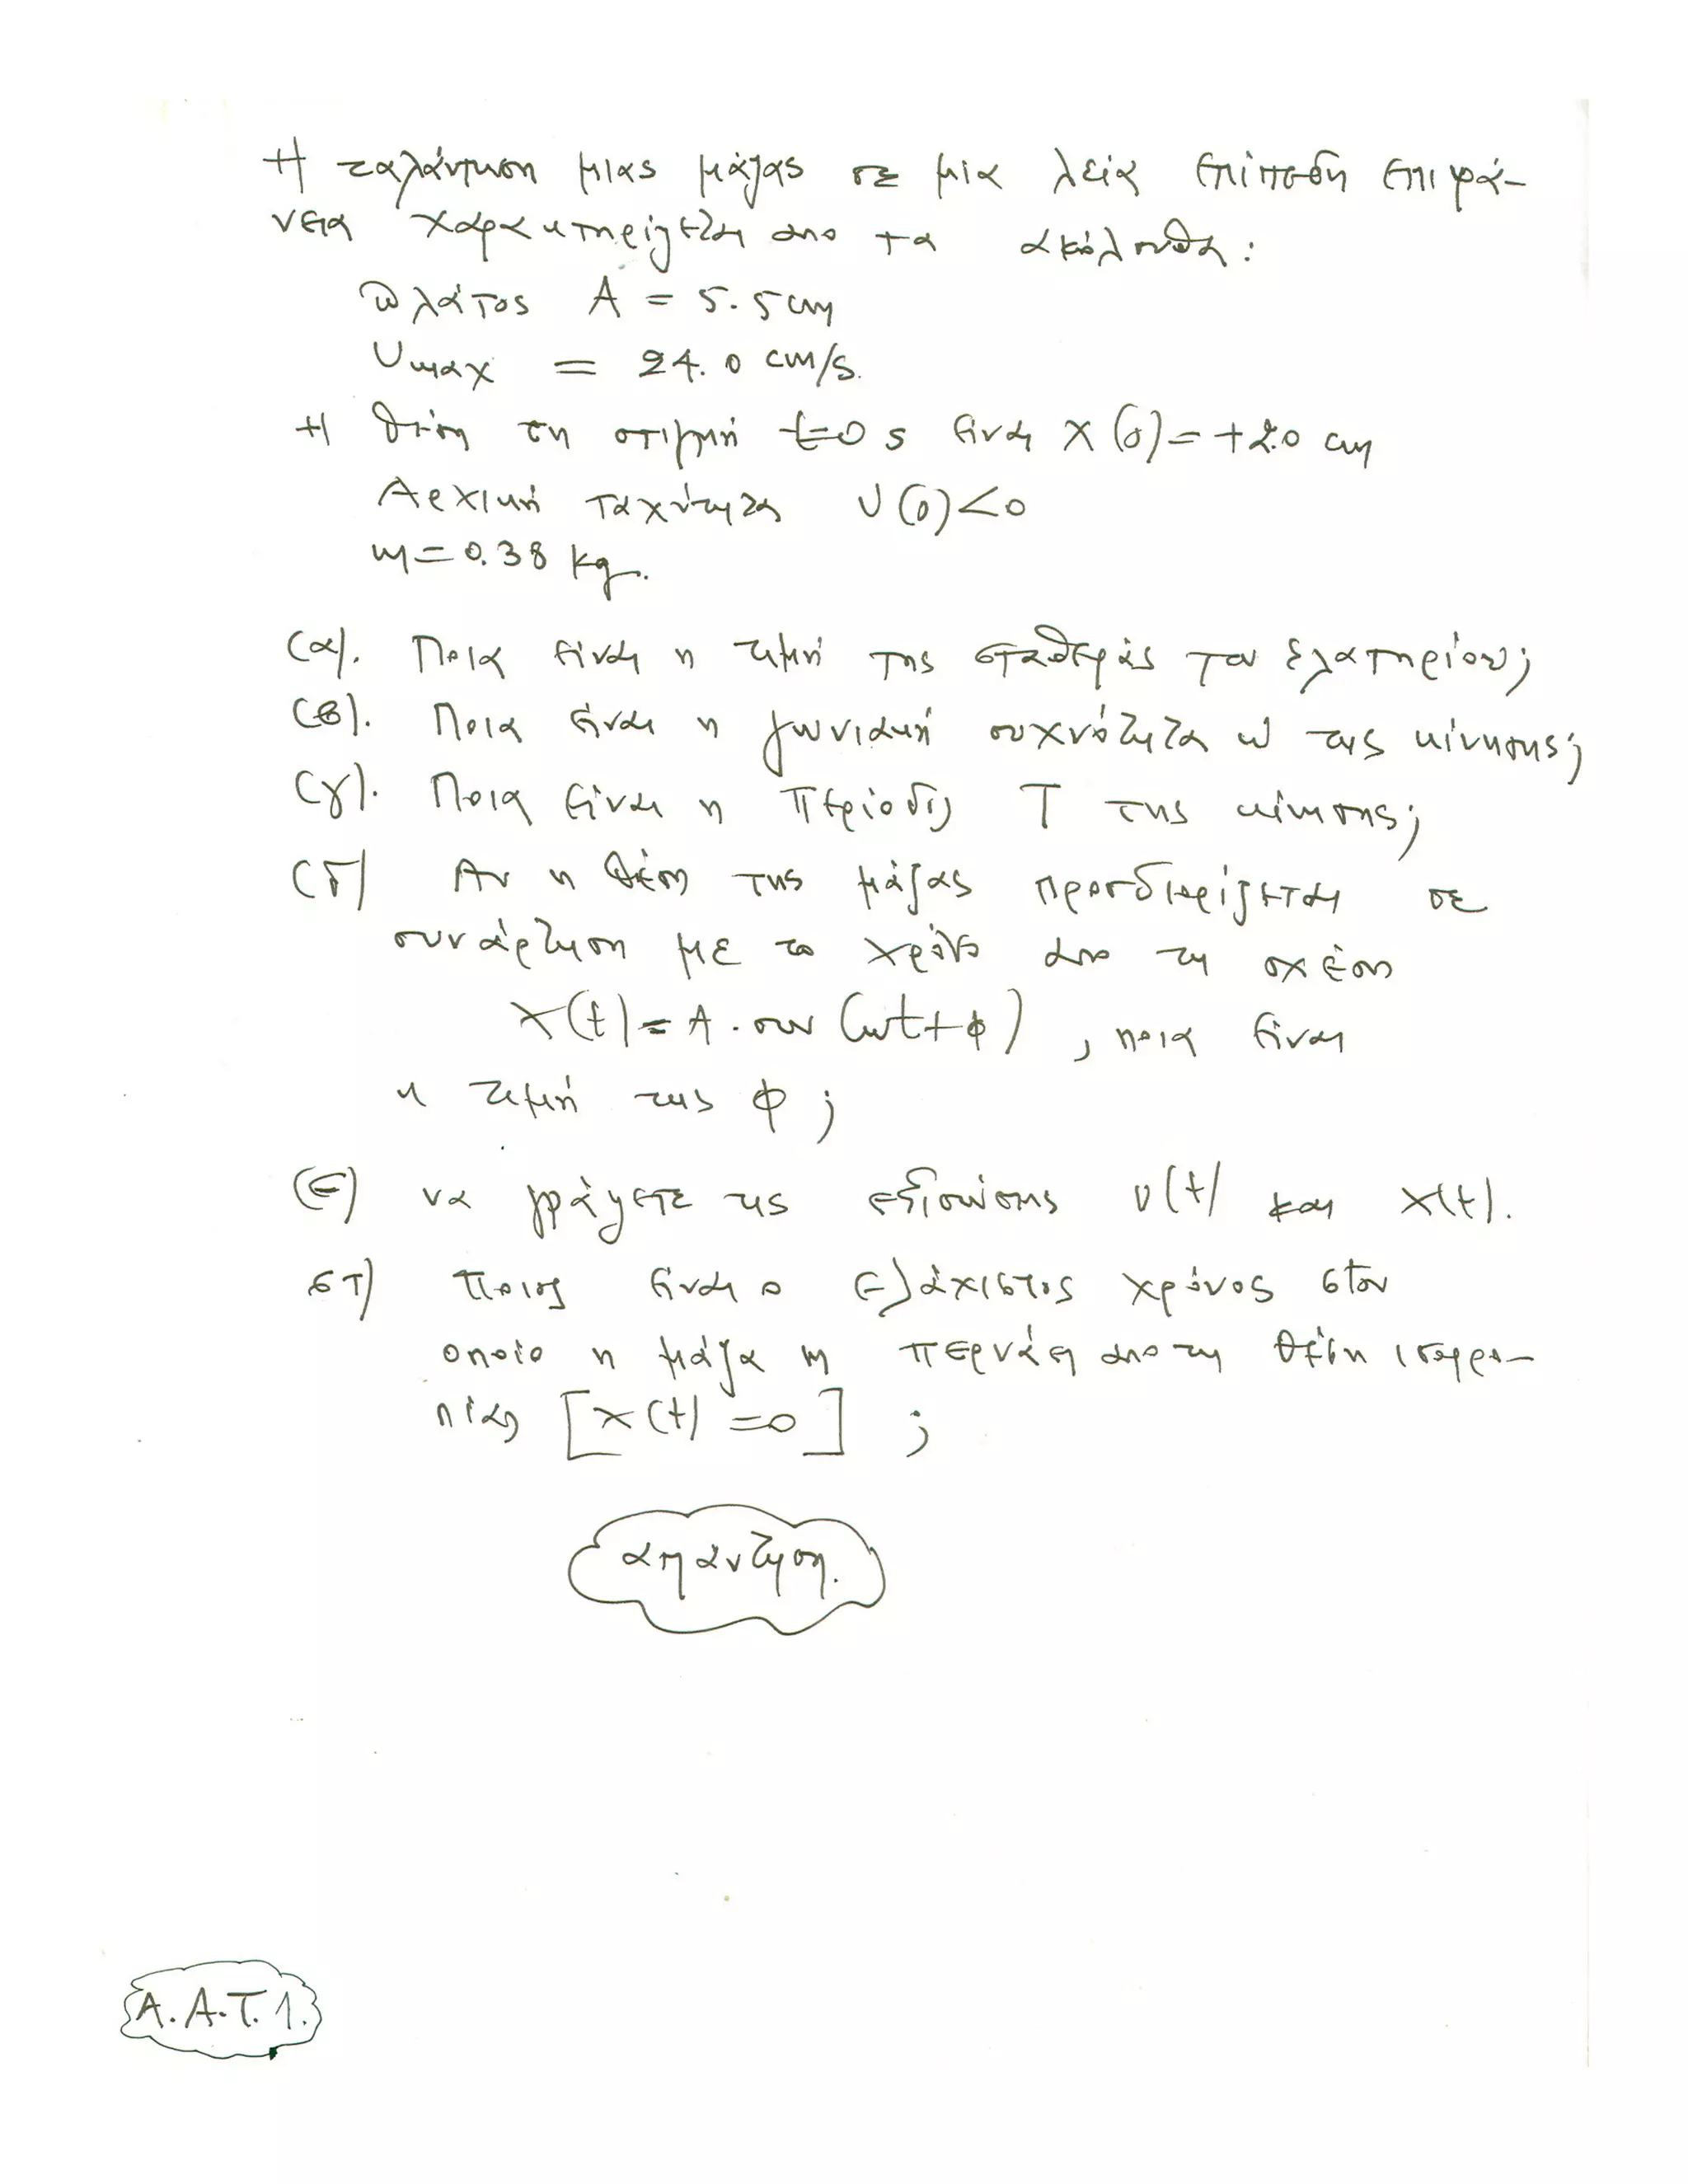 Η ταλάντωση μιας μάζας σε μια λεία επίπεδη επιφά-
νεια χαρακτηρίζεται απο τα ακόλουθα:
πλάτος A = 5.5 cm
υmax = 24.0 cm/s.
Η θέση τη στιγμή t=0 s είναι x(0)= +2.0 cm
Αρχική ταχύτητα υ(0)<0
m=0.38 kg.
(α). Ποια είναι η τιμή της σταθεράς του ελατηρίου;
(β). Ποια είναι η γωνιακή συχνότητα ω της κίνησης;
(γ). Ποια είναι η περίοδος T της κίνησης;
(δ) Αν η θέση της μάζας προσδιορίζεται σε
συνάρτηση με το χρόνο απο τη σχέση
x(t)=A·συν(ωt+φ) , ποια είναι
η τιμή της φ;
(ε) να γράψετε τις εξισώσεις υ(t) και x(t).
στ) ποιος είναι ο ελάχιστος χρόνος στον
οποίο η μάζα m περνάει απο τη θέση ισορρο-
πίας [x(t)=0] ;
απάντηση.
A.A.T.1.